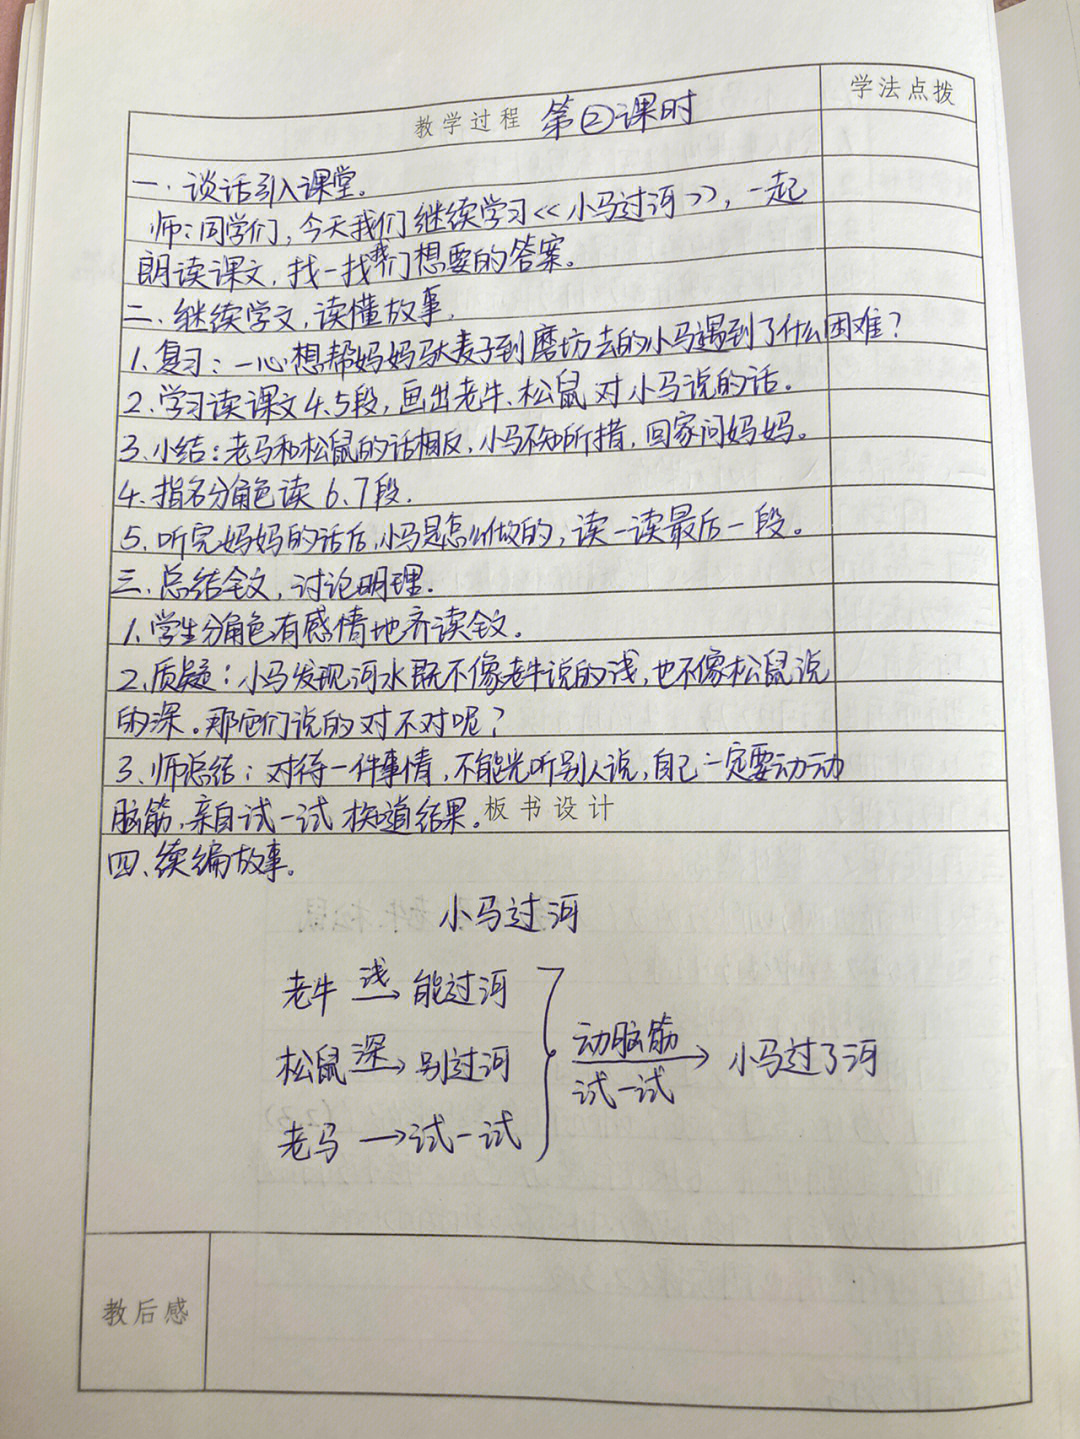 教学过程 第②课时 学法点拨
一.谈话引入课堂。
师:同学们,今天我们继续学习<<小马过河>>,一起
朗读课文,找一找我们想要的答案。
二.继续学文,读懂故事.
1.复习:一心想帮妈妈驮麦子到磨坊去的小马遇到了什么困难?
2.学习读课文4.5段,画出老牛、松鼠对小马说的话.
3.小结:老马和松鼠的话相反,小马不知所措,回家问妈妈。
4.指名分角色读6.7段.
5.听完妈妈的话后,小马是怎么做的,读一读最后一段。
三.总结全文,讨论明理.
1.学生分角色有感情地齐读全文。
2.质疑:小马发现河水既不像老牛说的浅,也不像松鼠说
的深。那他们说的对不对呢?
3.师总结:对待一件事情,不能光听别人说,自己一定要动动
脑筋,亲自试一试才知道结果。
板书设计
四、续编故事。
小马过河
老牛 浅→ 能过河
松鼠 深→ 别过河
老马 →试一试
动脑筋
试一试
→ 小马过了河
教后感